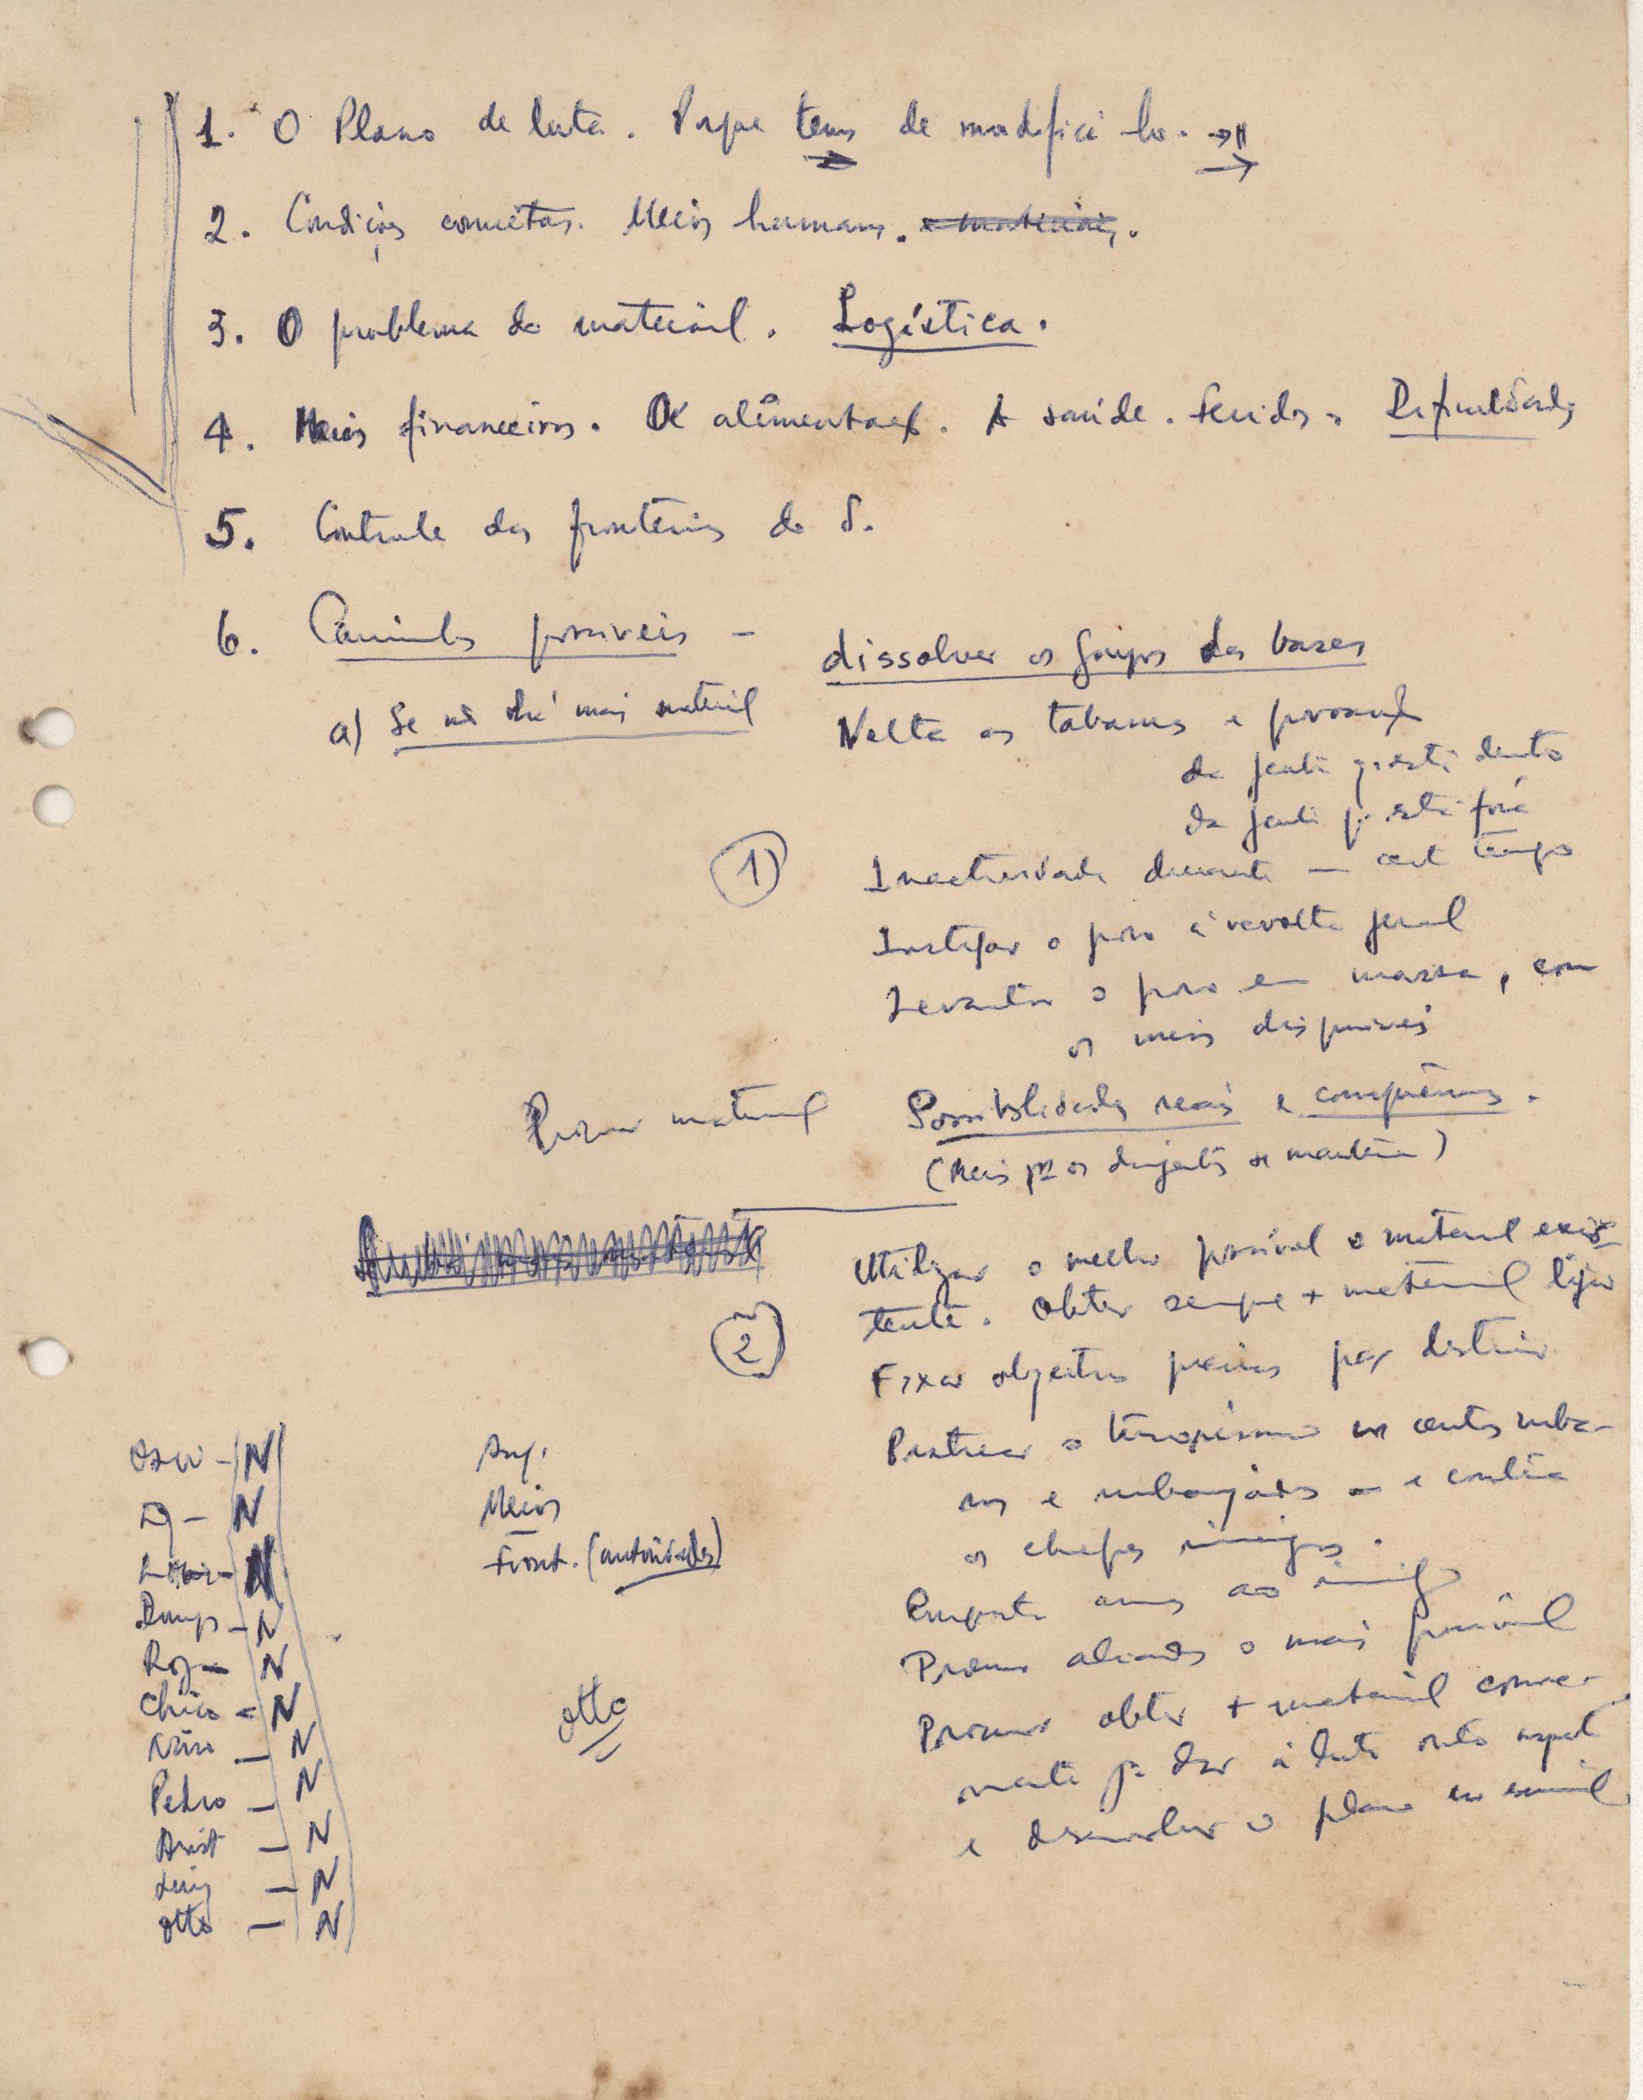 1. O Plano de luta. Porque temos de modificá-lo. →
2. Condições concretas. Meios humanos. e materiais.
3. O problema do material. Logística.
4. Meios financeiros. A alimentação. A saúde. Feridos. Dificuldades
5. Controle das fronteiras do S.
6. Caminhos possíveis - dissolver os grupos das bases
a) Se não há mais material
Volta às tabancas e
da gente q está dentro
da gente q está fora
1 Inactividade durante um certo tempo
Instigar o povo à revolta geral
Levantar o povo em massa, com
os meios disponíveis
Procurar material
Possibilidades reais e consequências.
(Meios pª os dirigentes se manterem)
Utilizar o melhor possível o material exis-
tente. Obter sempre + material ligeiro
2
Fixar objectivos precisos para destruir
Praticar o terrorismo nos centros urba-
nos e urbanizados e contra
os chefes inimigos.
armas ao inimigo
Procurar aliados o mais possível
Procurar obter + material conve-
niente pª dar à luta outro aspecto
e desenvolver o plano
Osv - N
N
N
N
N
Chico - N
Nino - N
Pedro - N
Arist - N
Luiz - N
Otto - N
Meios
Front. (autoridades)
Otto